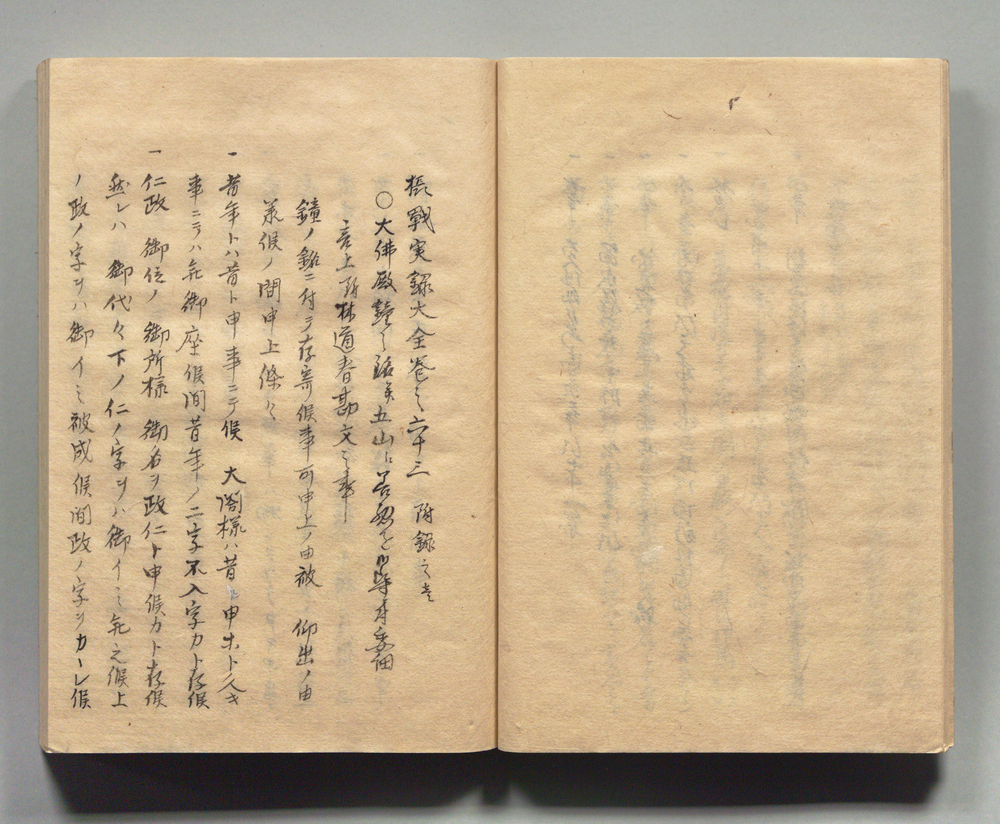 振戦実録大全巻之六十三 附録之壱
○大佛殿鐘之銘 五山 善悪 委細
言上 林道春勘文之事
鐘ノ銘ニ付テ存寄候事可申上ノ由被 仰出ノ由
承候ノ間申上條々
一 昔年トハ昔ト申事ニテ候 大閤様ハ昔 申ホト
事ニテハ無御座候間昔年ノ二字不入字カト存候
一 仁政 御位ノ 御所様 御名ヲ政仁ト申候カト存候
然レハ 御代々下ノ仁ノ字ヲハ御イミ無之候上
ノ政ノ字ヲハ御イミ被成候間政ノ字ヲカーレ候